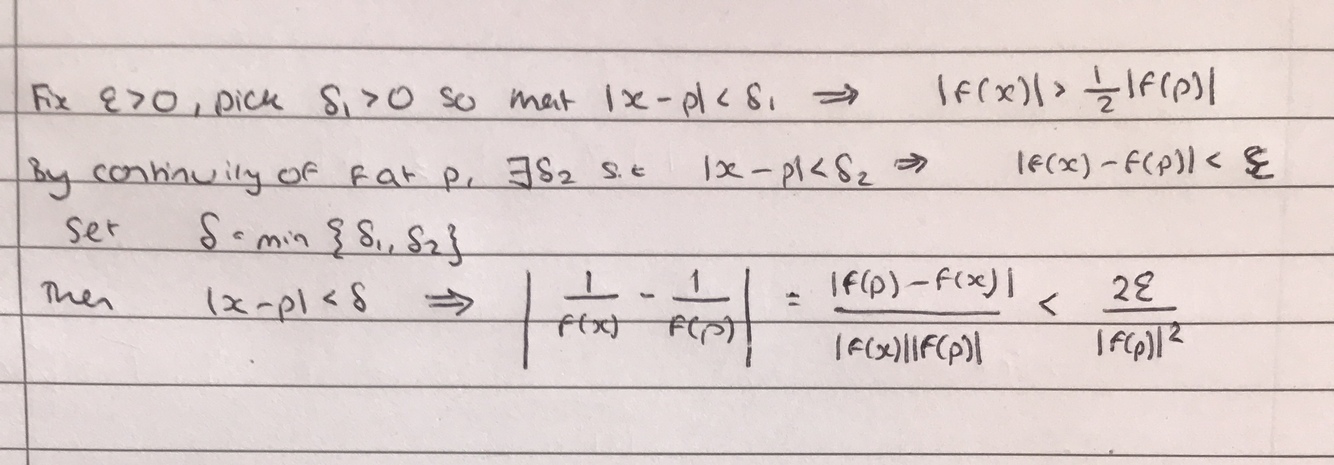 Fix ε>0, pick δ₁>0 so that |x-p|<δ₁ ⇒ |f(x)|>½|f(p)|
By continuity of f at p, ∃δ₂ s.t |x-p|<δ₂ ⇒ |f(x)-f(p)|<ε
Set δ=min{δ₁,δ₂}
Then |x-p|<δ ⇒ |1/f(x) - 1/f(p)| = |f(p)-f(x)|/|f(x)||f(p)| < 2ε/|f(p)|²